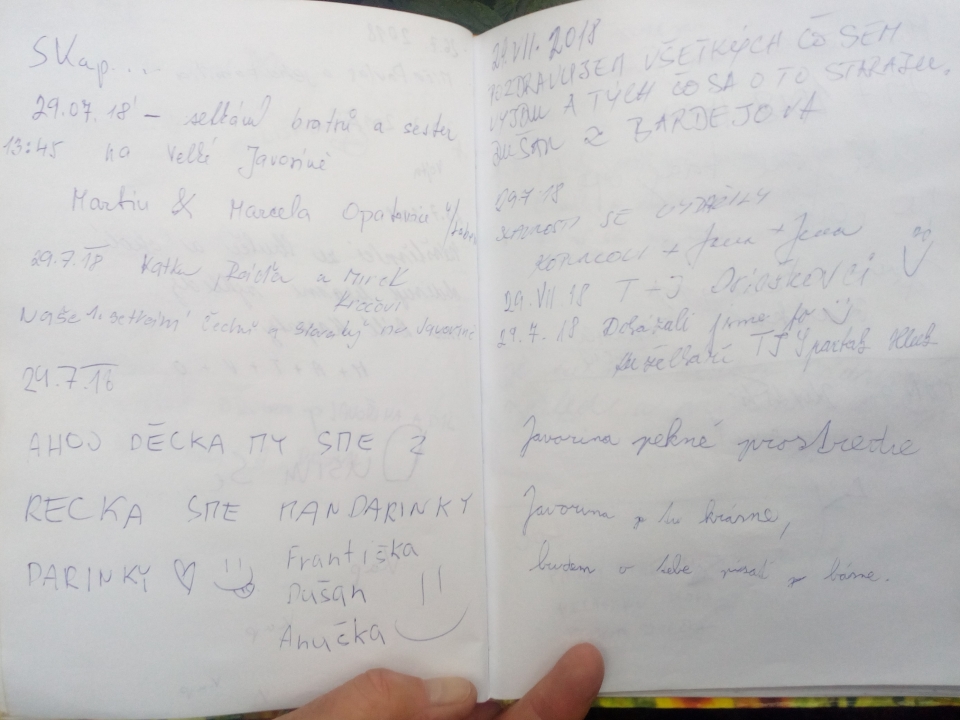 SKap....
29.07.18 – setkání bratrů a sester
13:45 na Velké Javořině
Martin & Marcela Opatovice
29.7.18 Katka, a Mirek
Naše 1. setkání Čechů a Slováků na Javorině
29.7.18
AHOJ DĚCKA MY SME Z
RECKA SME MANDARINKY
DARINKY ♡
Františka
Dušan
Anučka
29.VII.2018
POZDRAVUJEM VŠETKÝCH ČO SEM
VYJDU A TÝCH ČO SA O TO STARAJU.
DUŠAN Z BARDEJOVA
29.7.18
SE VYDAŘILY
+ Jana + Jana
29.VII.18 T + J
29.7.18 Dokázali jsme to
TJ Spartak Hluk
Javorina pekné prostredie
Javorina je tu krásne,
budem o tebe písať je básne.